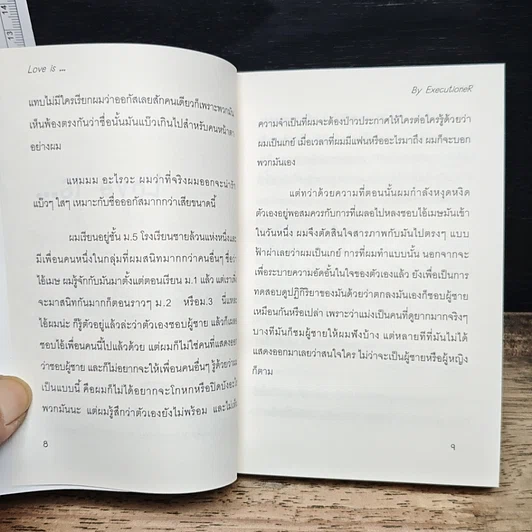 14
13
Love is ...
แทบไม่มีใครเรียกผมว่าออกัสเลยสักคนเดียวก็เพราะพวกมัน
เห็นพ้องตรงกันว่าชื่อนั้นมันแบ๊วเกินไปสำหรับคนหน้าตา
อย่างผม
แหมมม อะไรวะ ผมว่าที่จริงผมออกจะน่ารัก
แบ๊วๆ ใสๆ เหมาะกับชื่อออกัสมากกว่าเสียขนาดนี้
ผมเรียนอยู่ชั้น ม.5 โรงเรียนชายล้วนแห่งหนึ่งและ
มีเพื่อนคนหนึ่งในกลุ่มที่ผมสนิทมากกว่าคนอื่นๆ ชื่อว่า
ไอ้เมษ ผมรู้จักกับมันมาตั้งแต่ตอนเรียน ม.1 แล้ว แต่เรา
จะมาสนิทกันมากก็ตอนราวๆ ม.2 หรือม.3 นี่แหละ
ไอ้ผมน่ะ ก็รู้ตัวอยู่แล้วล่ะว่าตัวเองชอบผู้ชาย แล้วก็
ชอบไอ้เพื่อนคนนี้ไปแล้วด้วย แต่ผมก็ไม่ใช่คนที่แสดงออก
ว่าชอบผู้ชาย และก็ไม่อยากจะให้เพื่อนคนอื่นๆ รู้ด้วยว่า
เป็นแบบนี้ คือผมก็ไม่ได้อยากจะโกหกหรือปิดบังอะไร
พวกมันนะ แต่ผมรู้สึกว่าตัวเองยังไม่พร้อม และไม่
8
By ExecutioneR
ความจำเป็นที่ผมจะต้องป่าวประกาศให้ใครต่อใครรู้ด้วยว่า
ผมเป็นเกย์ เมื่อเวลาที่ผมมีแฟนหรืออะไรมาถึง ผมก็จะบอก
พวกมันเอง
แต่ทว่าด้วยความที่ตอนนั้นผมกำลังหงุดหงิด
ตัวเองอยู่พอสมควรกับการที่เผลอไปหลงชอบไอ้เมษมันเข้า
ในวันหนึ่ง ผมจึงตัดสินใจสารภาพกับมันไปตรงๆ แบบ
ฟ้าผ่าเลยว่าผมเป็นเกย์ การที่ผมทำแบบนั้น นอกจากจะ
เพื่อระบายความอัดอั้นในใจของตัวเองแล้ว ยังเพื่อเป็นการ
ทดสอบดูปฏิกิริยาของมันด้วยว่าตกลงมันเองก็ชอบผู้ชาย
เหมือนกันหรือเปล่า เพราะว่าแม่งเป็นคนที่ดูยากมากจริงๆ
บางทีมันก็ชมผู้ชายให้ผมฟังบ้าง แต่หลายทีที่มันไม่ได้
แสดงออกมาเลยว่าสนใจใคร ไม่ว่าจะเป็นผู้ชายหรือผู้หญิง
ก็ตาม
9